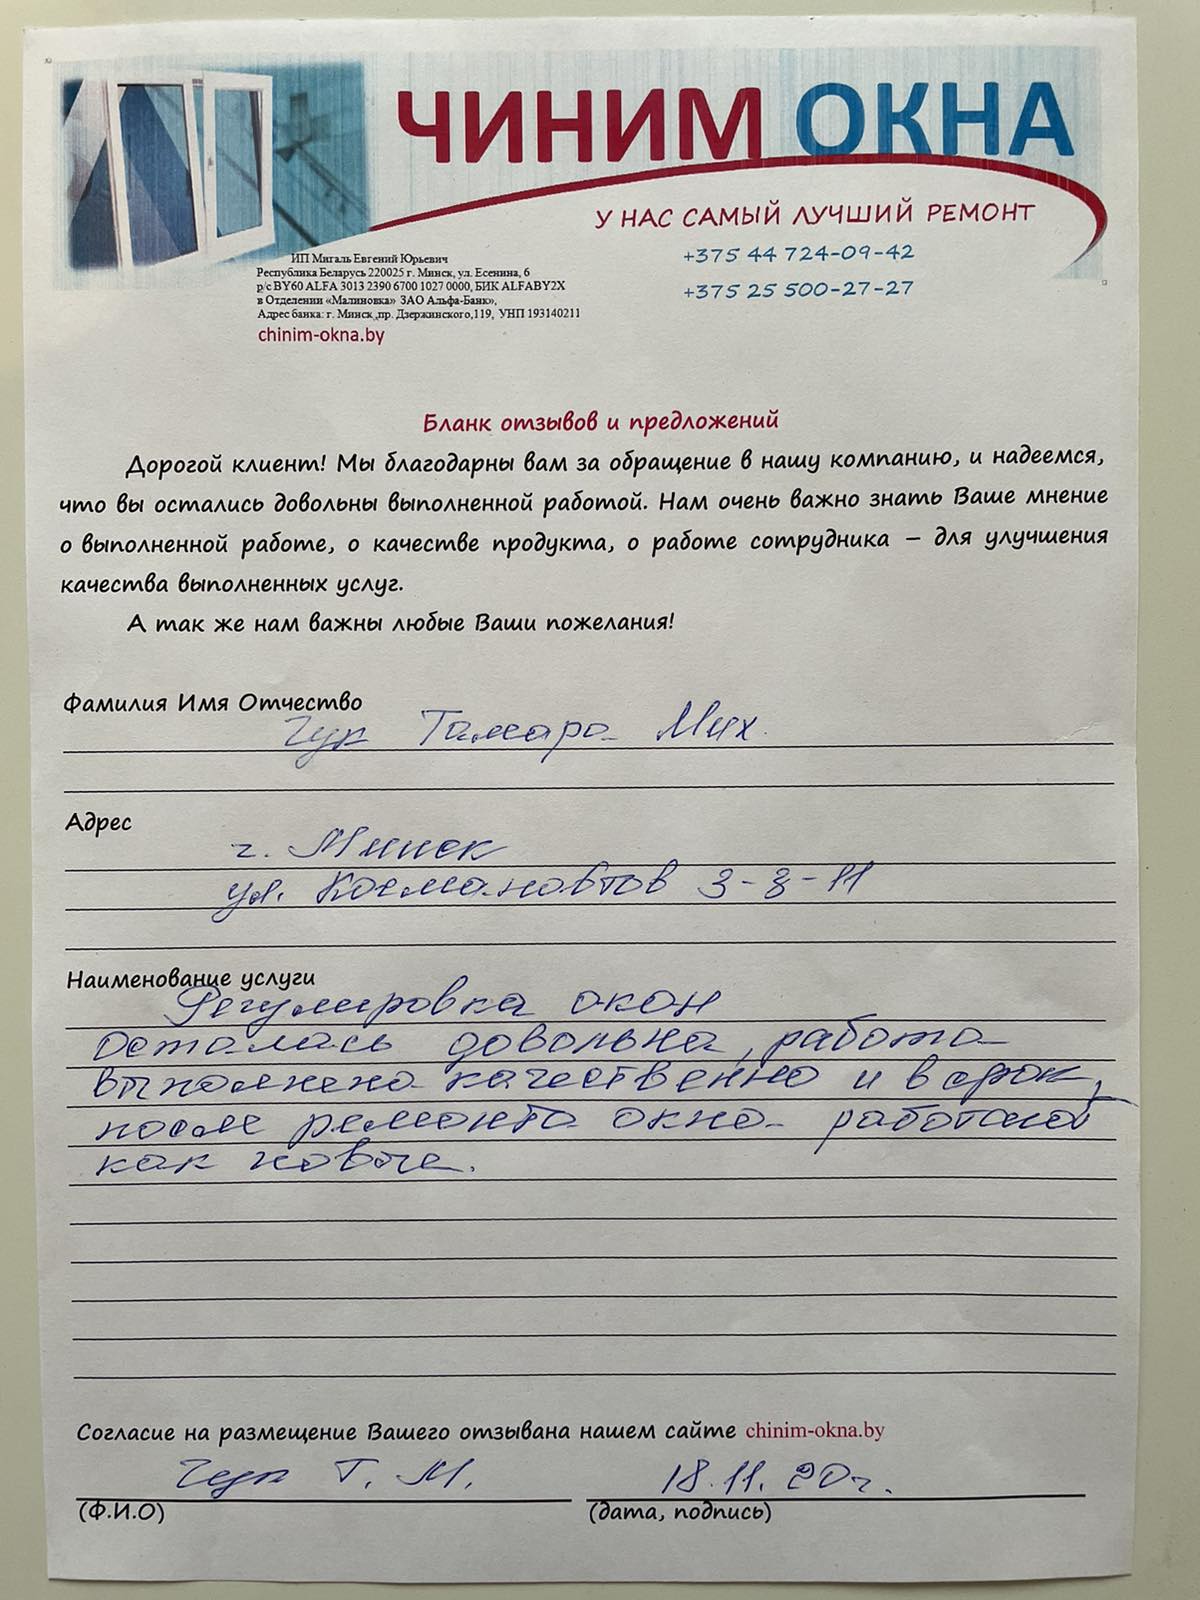 ЧИНИМ ОКНА
У НАС САМЫЙ ЛУЧШИЙ РЕМОНТ
+375 44 724-09-42
+375 25 500-27-27
ИП Мигаль Евгений Юрьевич
Республика Беларусь 220025 г. Минск, ул. Есенина, 6
р/с BY60 ALFA 3013 2390 6700 1027 0000, БИК ALFABY2X
в Отделении «Малиновка» ЗАО Альфа-Банк»,
Адрес банка: г. Минск ,пр. Дзержинского,119, УНП 193140211
chinim-okna.by
Бланк отзывов и предложений
Дорогой клиент! Мы благодарны вам за обращение в нашу компанию, и надеемся,
что вы остались довольны выполненной работой. Нам очень важно знать Ваше мнение
о выполненной работе, о качестве продукта, о работе сотрудника – для улучшения
качества выполненных услуг.
А так же нам важны любые Ваши пожелания!
Фамилия Имя Отчество
Тамара Мих.
Адрес
г. Минск
ул. Космонавтов 3-3-11
Наименование услуги
Регулировка окон
Осталась довольна, работа
выполнена качественно и в срок,
после ремонта окна работают
как новые.
Согласие на размещение Вашего отзывана нашем сайте chinim-okna.by
Т. М.
18.11.20г.
(Ф.И.О)
(дата, подпись)